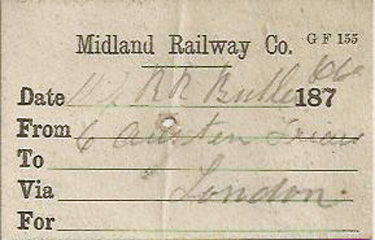 Midland Railway Co. G F 155
Date R R 187
From 6 Austen Friars
To
Via London.
For